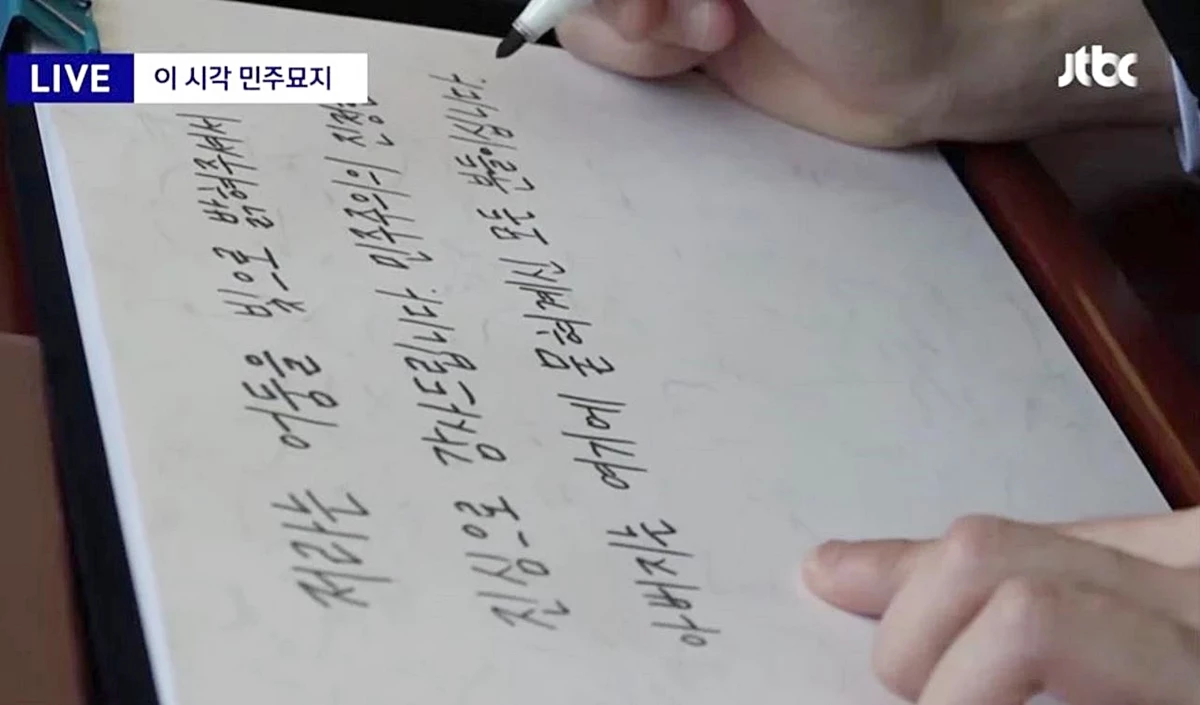 LIVE 이 시각 민주묘지
jtbc
저라는 어둠을 빛으로 밝혀주셔서
진심으로 감사드립니다. 민주주의의 진정한
아버지는 여기에 묻혀계신 모든 분들이십니다.